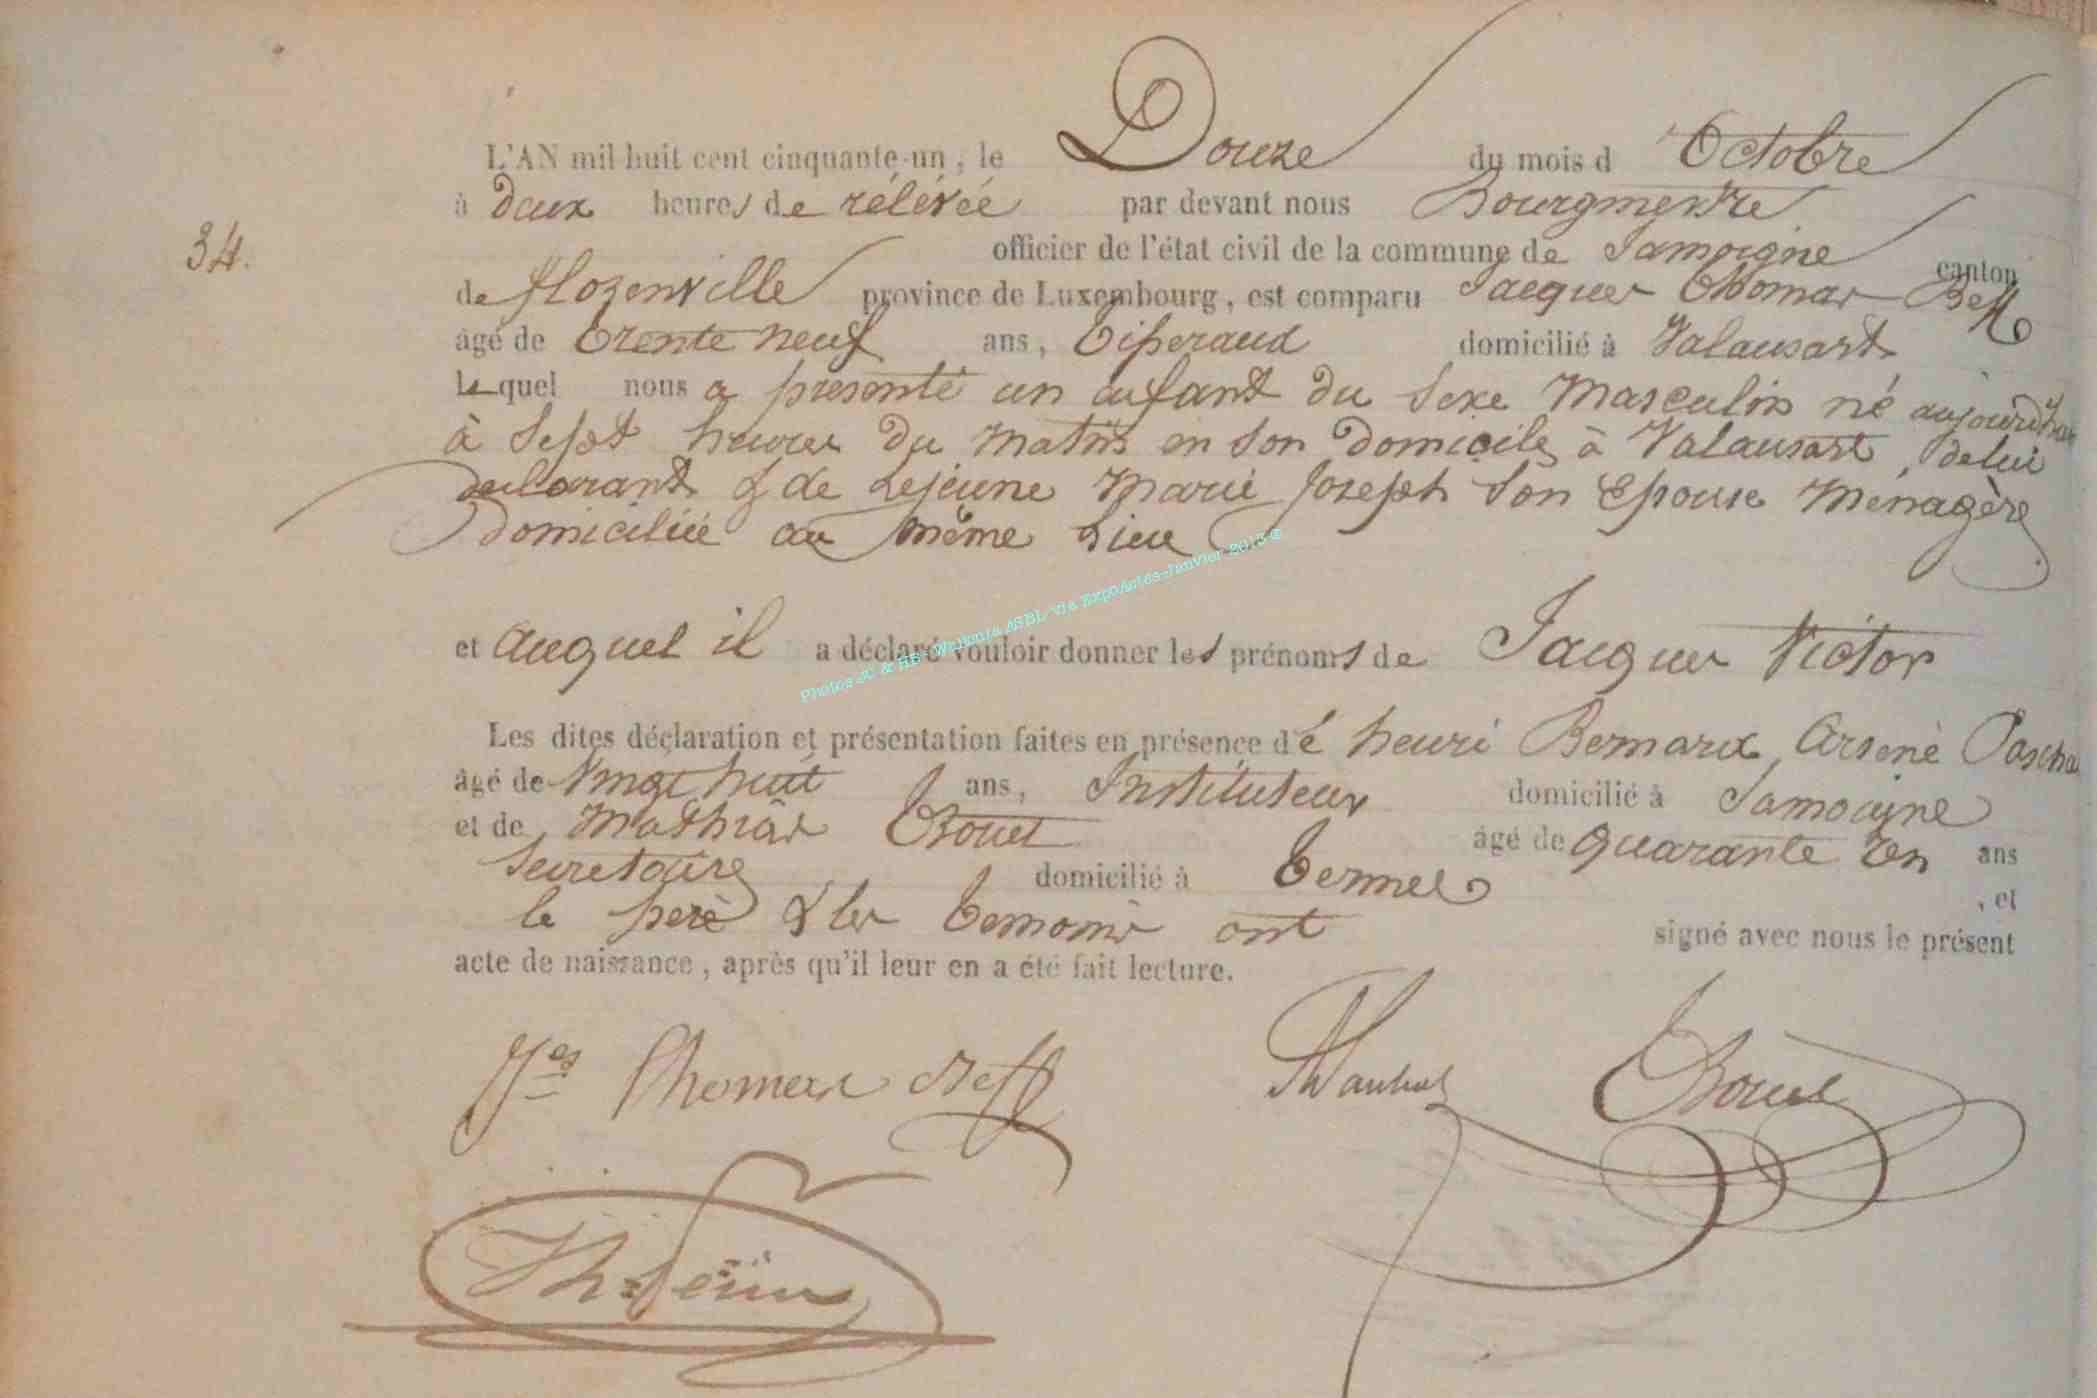 L'AN mil huit cent cinquante-un, le Douze du mois d Octobre
à deux heures de rélévée par devant nous Bourgmestre
34.
officier de l'état civil de la commune de Jamoigne canton
de florenville province de Luxembourg, est comparu Jacques Thomas Neff
âgé de trente neuf ans, Tisserand domicilié à Valansart
lequel nous a presenté un enfant du sexe Masculin né aujourd'hui
à Sept heures du matin en son domicile à Valansart, de lui
declarant & de Lejeune Marie Joseph son Epouse Ménagère
domiciliée au même lieu
Photos JC & HB - Wallonia ASBL via ExpoActes-Janvier 2013 ©
et auquel il a déclaré vouloir donner les prénoms de Jacques Victor
Les dites déclaration et présentation faites en présence dé henri Arsené
âgé de vingt huit ans, Instituteur domicilié à Jamoigne
et de Mathias âgé de quarante un ans
Secretaire domicilié à Termes, et
le peré & les temoins ont signé avec nous le présent
acte de naissance, après qu'il leur en a été fait lecture.
Jes Thomas Neff